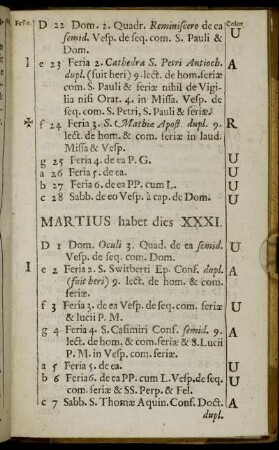 Festa. Color
D 22 Dom. 2. Quadr. Reminiscere de ea U
semid. Vesp. de seq. com. S. Pauli &
Dom.
I e 23 Feria 2. Cathedra S. Petri Antioch. A
dupl. (fuit heri) 9. lect. de hom. feriæ
com. S. Pauli & feriæ nihil de Vigi
lia nisi Orat. 4. in Missa. Vesp. de
seq. com. S. Petri, S. Pauli & feriæ.
✠ f 24 Feria 3. S. Mathiæ Apost. dupl. 9. R
lect. de hom. & com. feriæ in laud.
Missa & Vesp.
g 25 Feria 4. de ea P. G. U
a 26 Feria 5. de ea. U
b 27 Feria 6. de ea PP. cum L. U
c 28 Sabb. de eo Vesp. à cap. de Dom. U
MARTIUS habet dies XXXI.
D 1 Dom. Oculi 3. Quad. de ea semid. U
Vesp. de seq. com. Dom.
I e 2 Feria 2. S. Switberti Ep. Conf. dupl. A
(fuit heri) 9. lect. de hom. & com.
feriæ.
f 3 Feria 3. de ea Vesp. de seq. com. feriæ U
& lucii P. M.
g 4 Feria 4. S. Casimiri Conf. semid. 9. A
lect. de hom. & com. feriæ & S. Lucii
P. M. in Vesp. com. feriæ.
a 5 Feria 5. de ea. U
b 6 Feria 6. de ea PP. cum L. Vesp. de seq. U
com. feriæ & SS. Perp. & Fel.
c 7 Sabb. S. Thomæ Aquin. Conf. Doct. A
dupl.